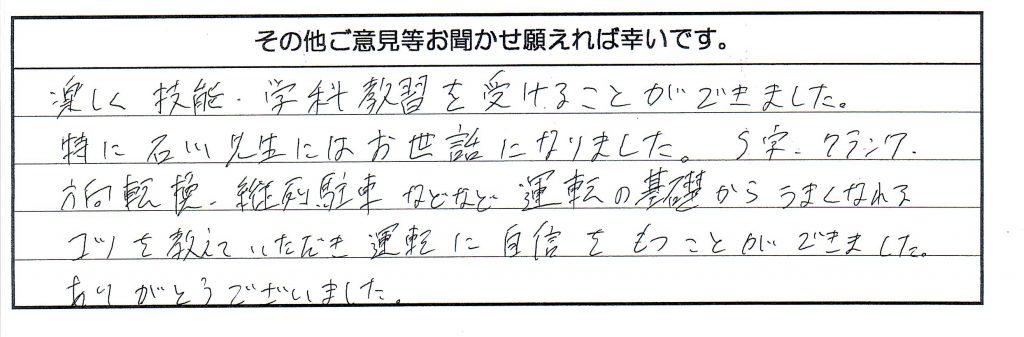 その他ご意見等お聞かせ願えれば幸いです。
楽しく 技能・学科教習を受けることができました。
特に石川先生にはお世話になりました。S字・クランク・
方向転換・縦列駐車などなど運転の基礎からうまくなれる
コツを教えていただき運転に自信をもつことができました。
ありがとうございました。